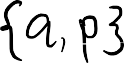 {a, p}